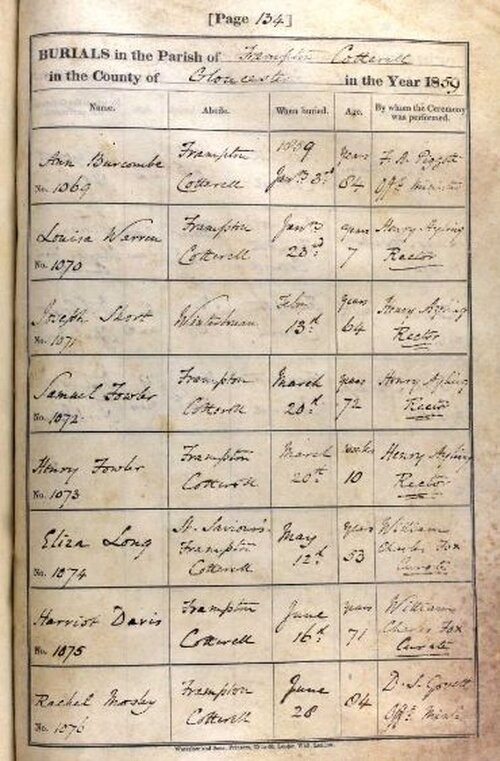 [Page 134]
BURIALS in the Parish of Frampton Cotterell
in the County of Gloucester in the Year 1859
Name. Abode. When buried. Age. By whom the Ceremony was performed.
Ann Burcombe
No. 1069
Frampton
Cotterell
1859
Jany. 3d
years
84
F. A. Piggott
Offg. Minister
Louisa Warren
No. 1070
Frampton
Cotterell
Jany.
23d
years
7
Henry Ayling
Rector
Joseph Short
No. 1071
Winterbourn
Feby.
13th
years
64
Henry Ayling
Rector
Samuel Fowler
No. 1072
Frampton
Cotterell
March
20th
years
72
Henry Ayling
Rector
Henry Fowler
No. 1073
Frampton
Cotterell
March
20th
weeks
10
Henry Ayling
Rector
Eliza Long
No. 1074
St. Saviour's
Frampton
Cotterell
May
12th
years
53
William
Charles Fox
Curate
Harriot Davis
No. 1075
Frampton
Cotterell
June
16th
years
71
William
Charles Fox
Curate
Rachel Mosley
No. 1076
Frampton
Cotterell
June
28
84
D. S.
Offg. Minr.
Waterlow and Sons, Printers, London Wall, London.